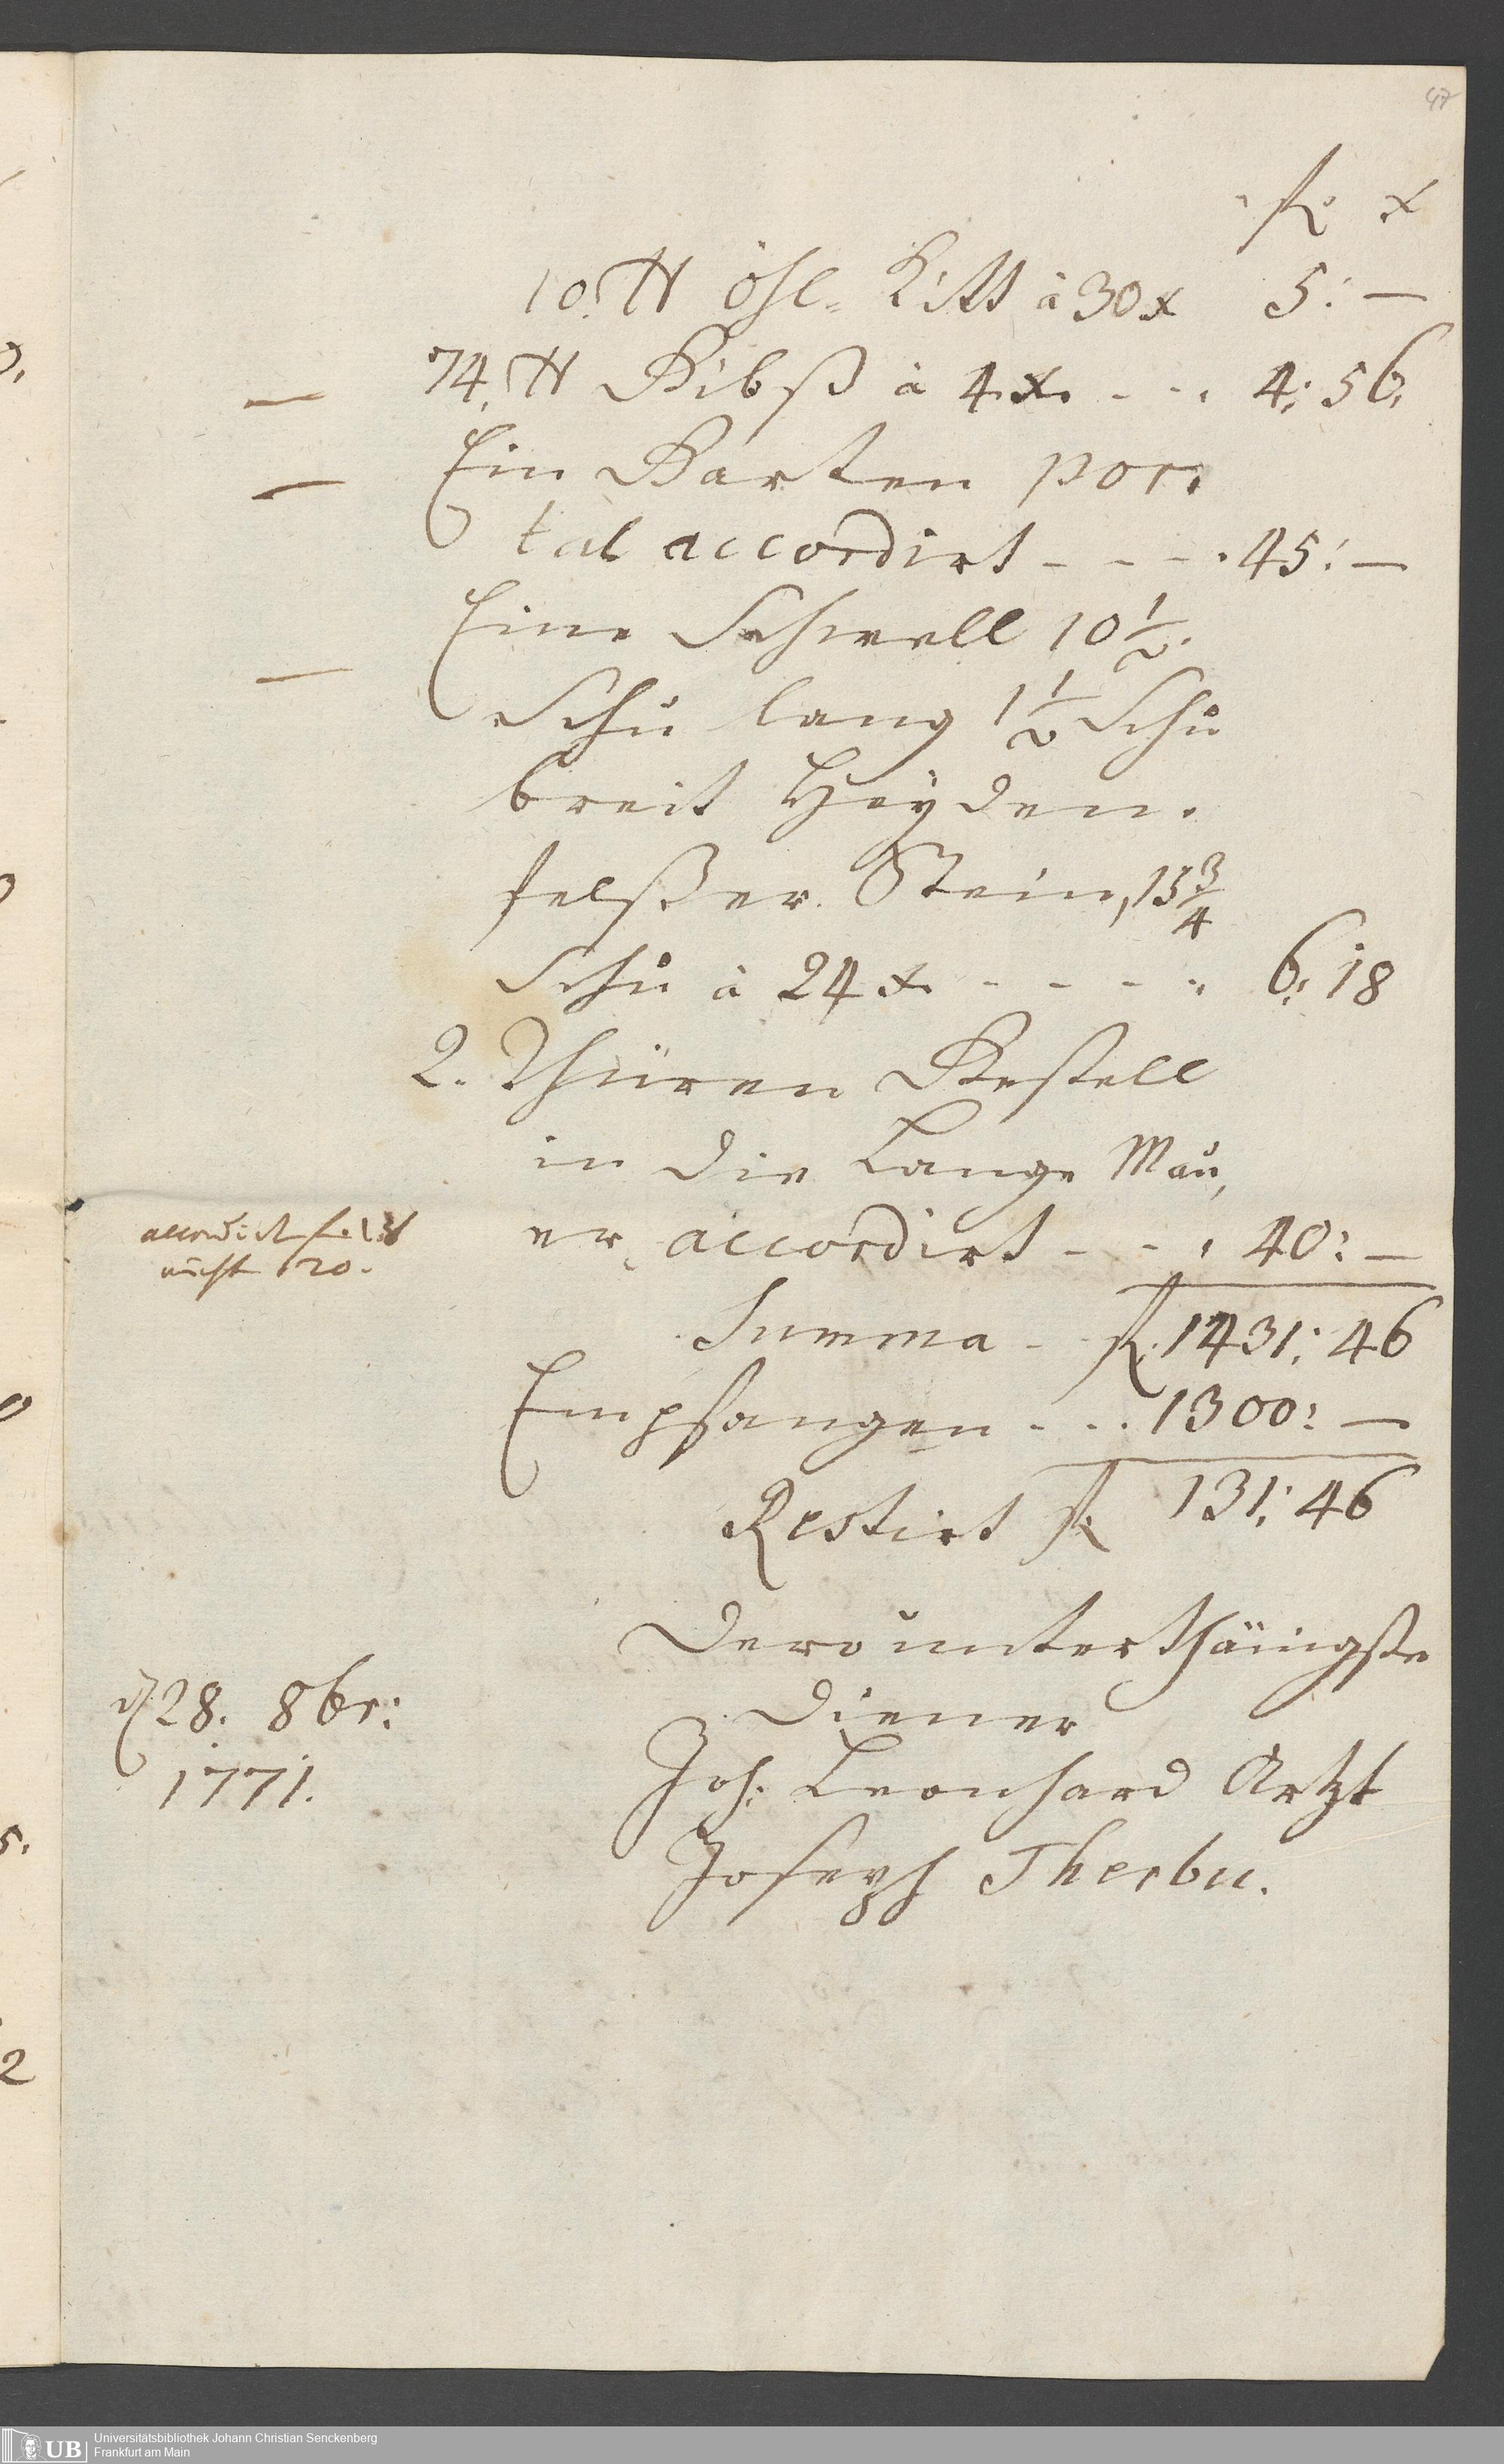 47
fl x
10. ℔ öhl- Kitt à 30 x 5: —
— 74. ℔ Gibß à 4 x. - - . 4: 56.
— Ein Garten por-
tal accordirt - - - . 45: —
— Eine Schwell 10 1/2.
Schu lang 1 1/2 Schu
breit Heyden-
felßer Stein, 15 3/4
Schu à 24 x. - - - - . 6: 18
2. Thüren Gestell
in die Lange Mau,
er accordirt - - . 40: —
accordirt f.
nicht 20.
Summa - - fl. 1431: 46
Empfangen - - . 1300: —
Restirt fl 131: 46
Dero unterthänigste
Diener
d 28. 8br:
1771.
Joh: Leonhard Artzt
Joseph Therbu.
UB
Universitätsbibliothek Johann Christian Senckenberg
Frankfurt am Main